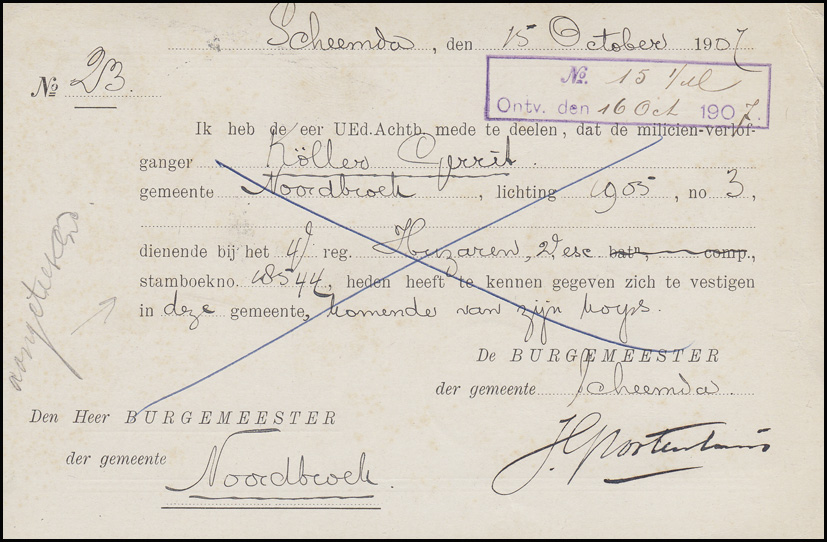 Scheemda, den 15 October 1907
No 23.
No. 15
Ontv. den 16 Oct 1907.
Ik heb de eer UEd.Achtb. mede te deelen, dat de milicien-verlof-
ganger Köller Gerrit.
gemeente Noordbroek, lichting 1905, no 3,
dienende bij het 4e reg. Huzaren, 2e esc batn, comp.,
stamboekno. 18544, heden heeft te kennen gegeven zich te vestigen
in deze gemeente, komende van zijn korps.
aangeteekend
De BURGEMEESTER
der gemeente Scheemda
Den Heer BURGEMEESTER
der gemeente
Noordbroek.